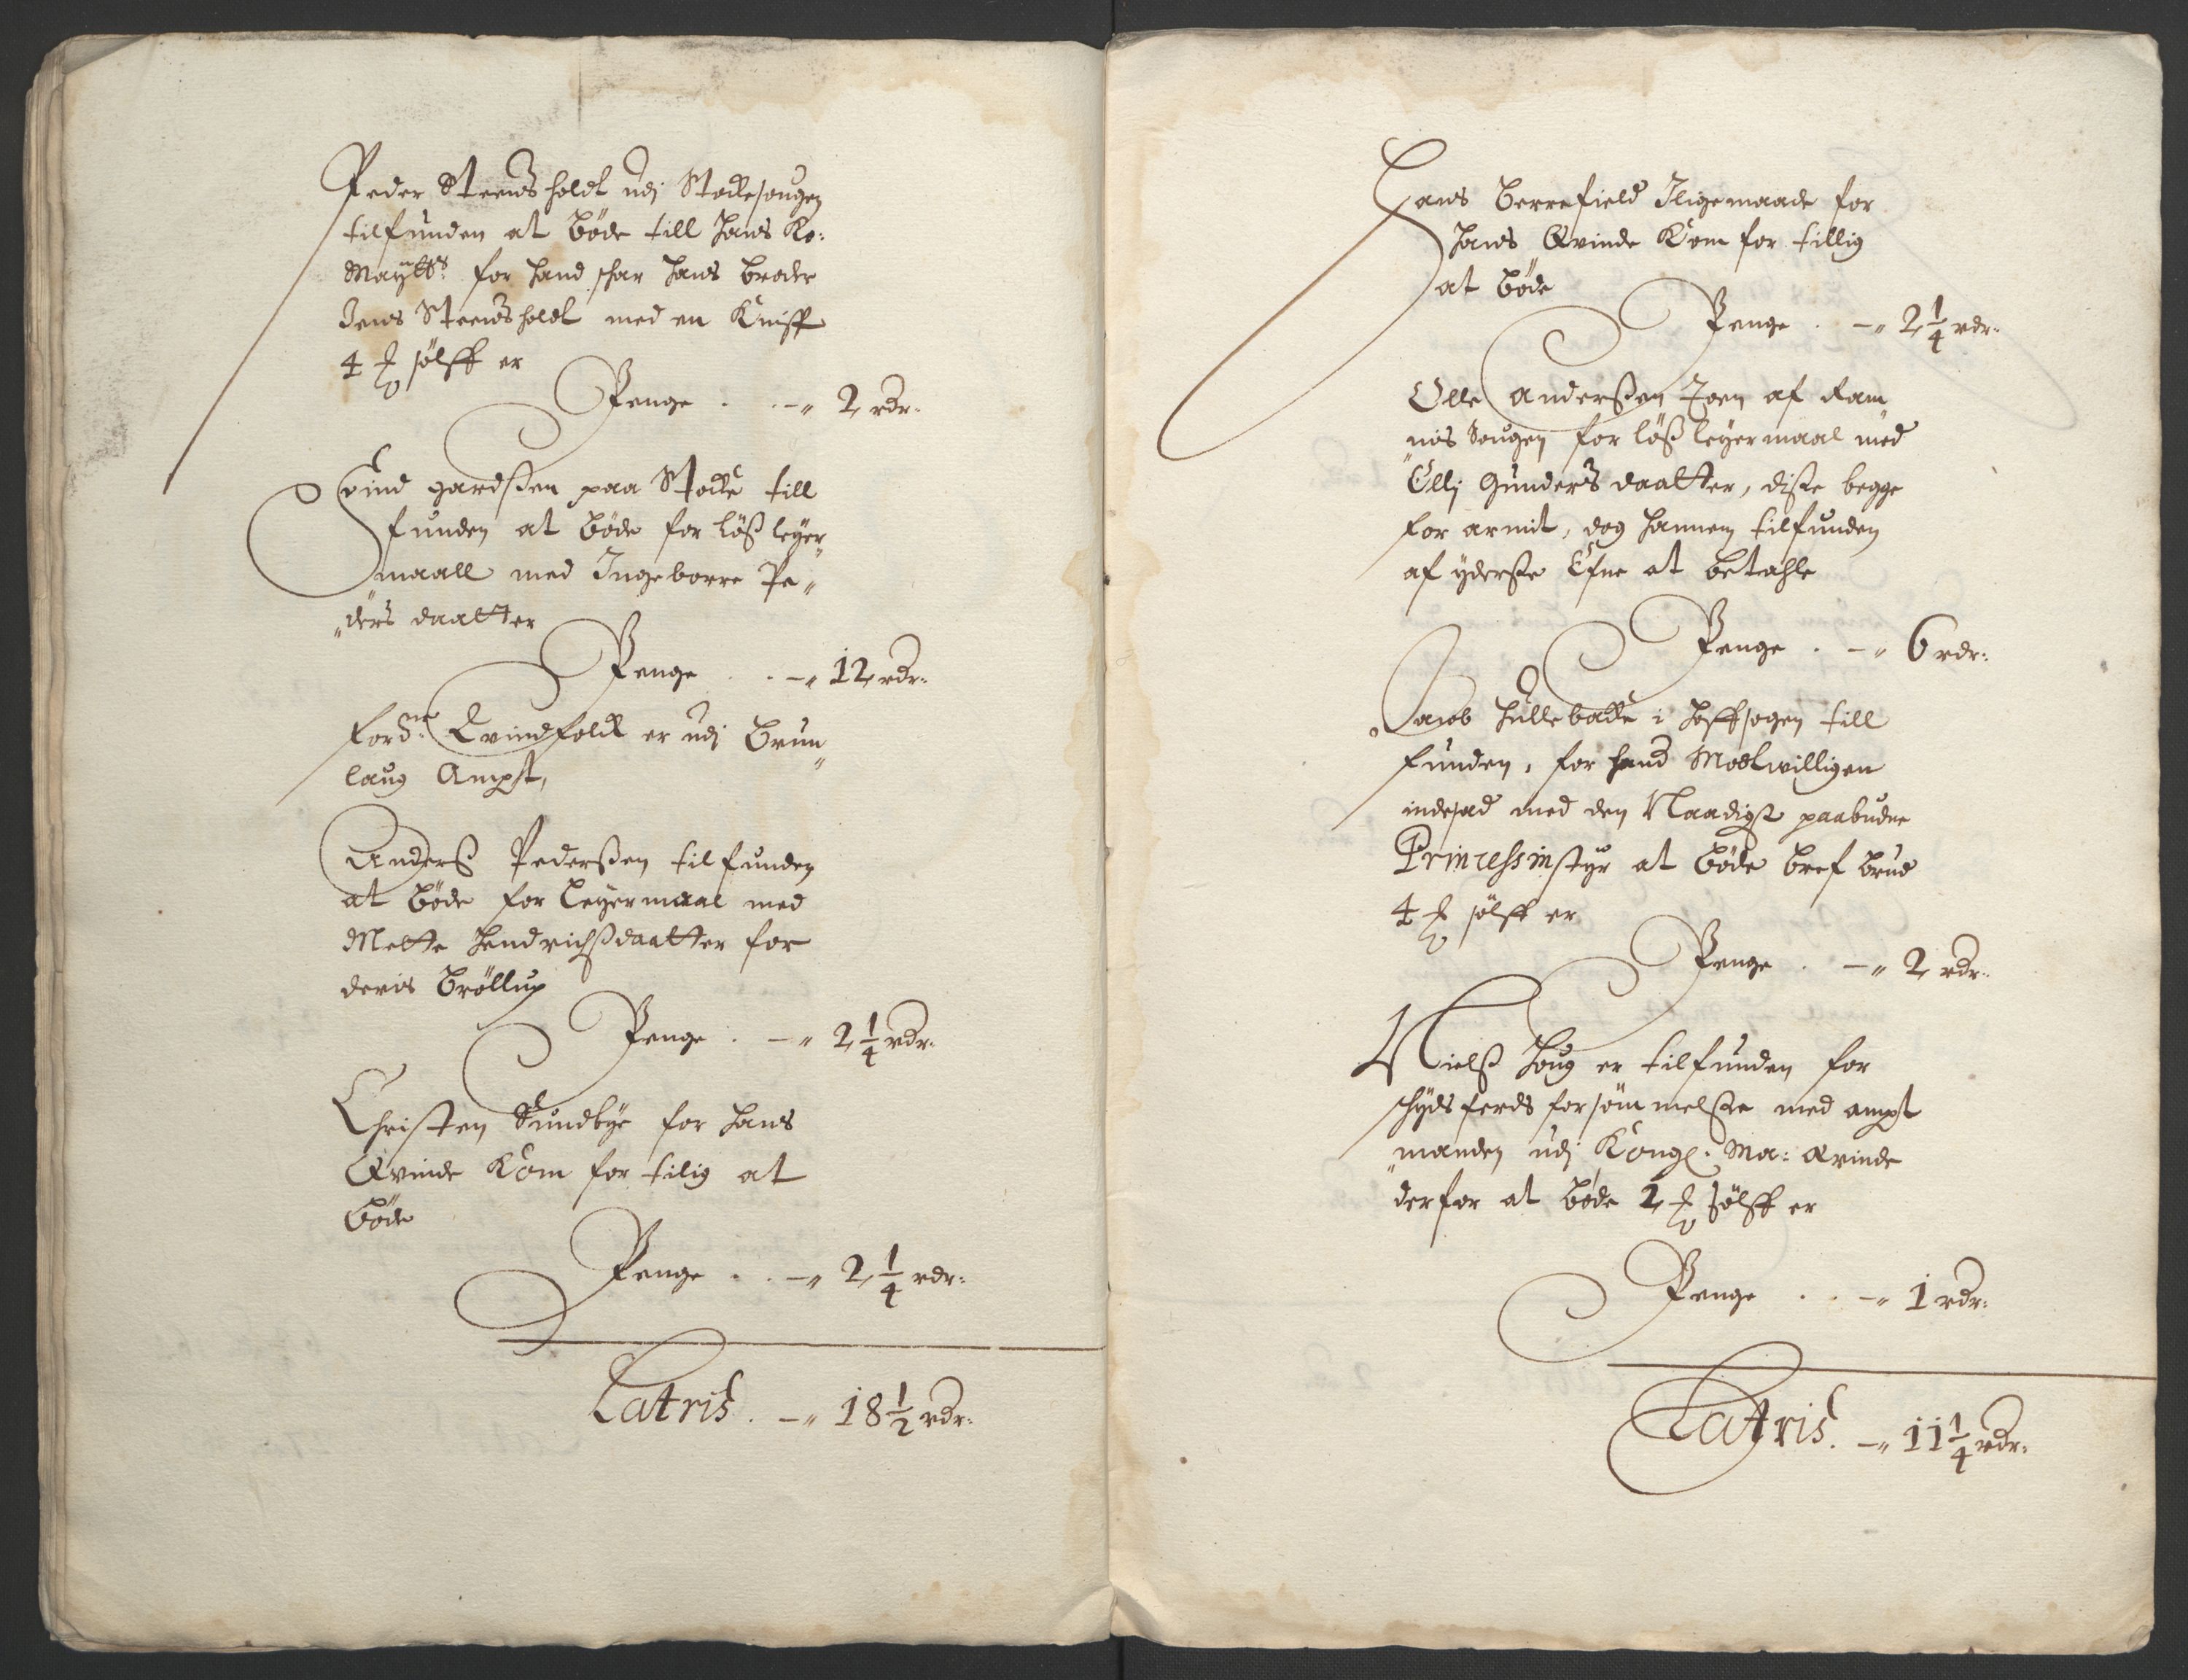 Peder Steensholdt udj Stockesougen
tilfunden at bøde till Hans Ko:
Maÿtts: for hand schar hans broder
Jens Steensholdt med en Kniff
4 sølff er
Penge . . -" 2 rdr:
Evind gardßen paa Stocke till
funden at bøde for løßleÿer„
maall med Ingeborre Pe„
„ders daatter
Penge . . -" 12 rdr:
fordne: Qvindfolck er udj Brun„
laug Ampt,
Anderß Pederßen tilfunden
at bøde for Leÿermaal med
Mette Hendrichßdaatter for
deris Brøllup
Penge . -" 2 1/4 rdr:
Christen Sundbÿe for hans
Qvinde Kom for tilig at
bøde
Penge . . -" 2 1/4 rdr:
Latris . -" 18 1/2 rdr:
Hans Berrefield Jligemaade for
hans Qvinde Kom for tillig
at bøde
Penge . -" 2 1/4 rdr:
Olle Anderßen Joen af Ram„
„nis Sougen for løßleÿermaal med
Ellj Gunders daatter, diße begge
for armit, dog hannem tilfunden
af ÿderste Efne at betahle
Penge . -" 6 rdr:
Jacob Hullebacke i Hoffsogen till
funden, for hand Modtwilligen
indesad med den Naadigst paabudne
Princessinstÿr at bøde bref brud
4 sølff er
Penge . -" 2 rdr:
Nielß Houg er tilfunden for
schÿds ferds forsømmelße med ampt
„manden udj Kongl. Ma: Ærinde
derfor at bøde 2 sølff er
Penge . . -" 1 rdr:
Latris . -" 11 1/4 rdr: